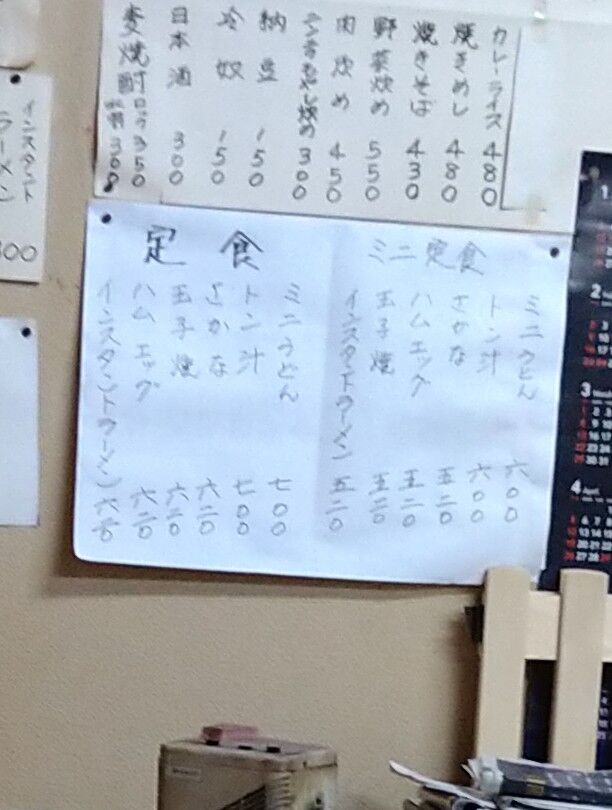 カレーライス 480
焼きめし 480
焼きそば 430
野菜炒め 550
肉炒め 450
300
納豆 150
冷奴 150
日本酒 300
麦焼酎 ロック350
300
ミニ定食
ミニうどん 六００
トン汁 六００
さかな 五二０
ハムエッグ 五二０
玉子焼 五二０
インスタントラーメン 五二０
定食
ミニうどん 七００
トン汁 七００
さかな 六二０
玉子焼 六二０
ハムエッグ 六二０
インスタントラーメン 六二０
インスタント
ラーメン
300
1
2
3
4 April